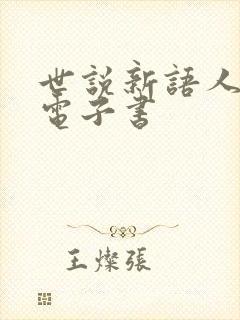 世説新語人
電子書
王燦張